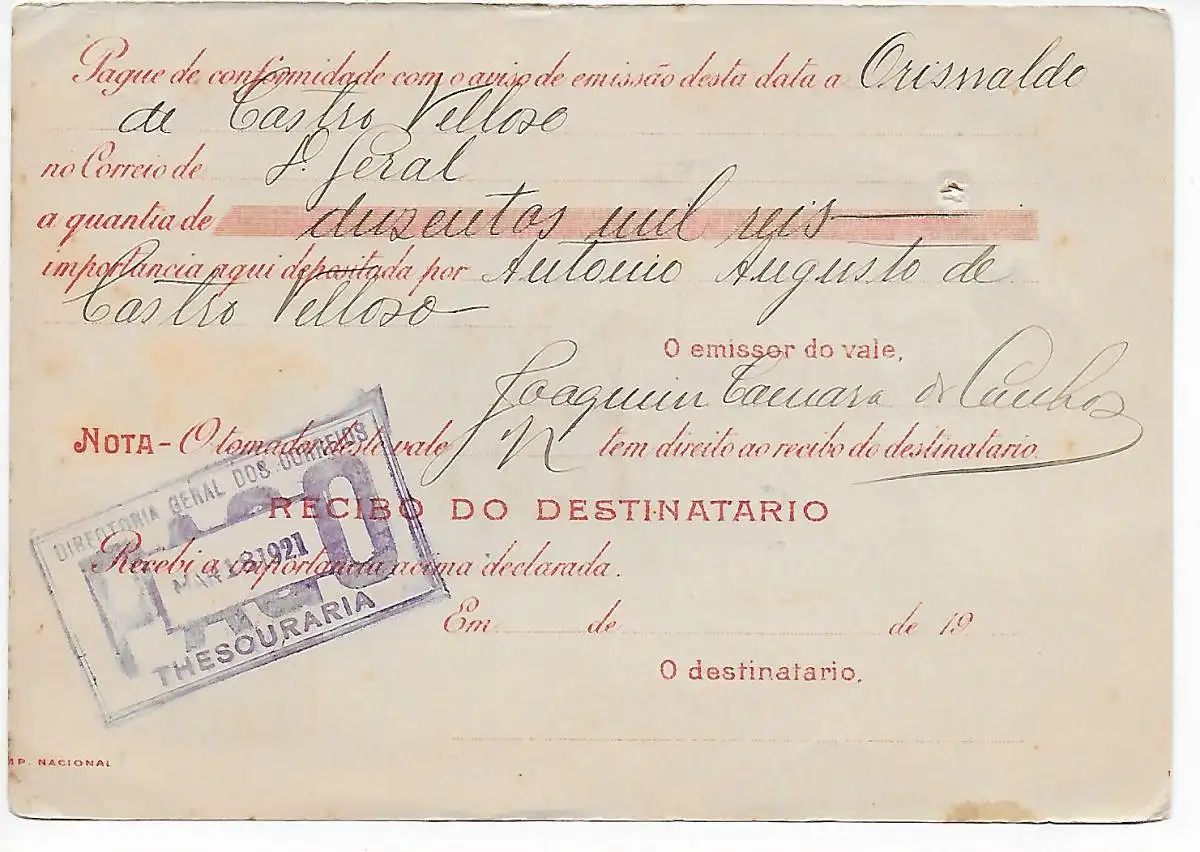 Pague de conformidade com o aviso de emissão desta data a Orisvaldo
de Castro Velloso
no Correio de D. Geral
a quantia de duzentos mil reis
importancia aqui depositada por Antonio Augusto de
Castro Velloso
O emissor do vale,
Joaquim Camara de
NOTA - O tomador deste vale N tem direito ao recibo do destinatario.
RECIBO DO DESTINATARIO
Recebi a importancia acima declarada.
Em de de 19
O destinatario,
DIRECTORIA GERAL DOS CORREIOS
PAGO
MAR 18 1921
THESOURARIA
MP. NACIONAL